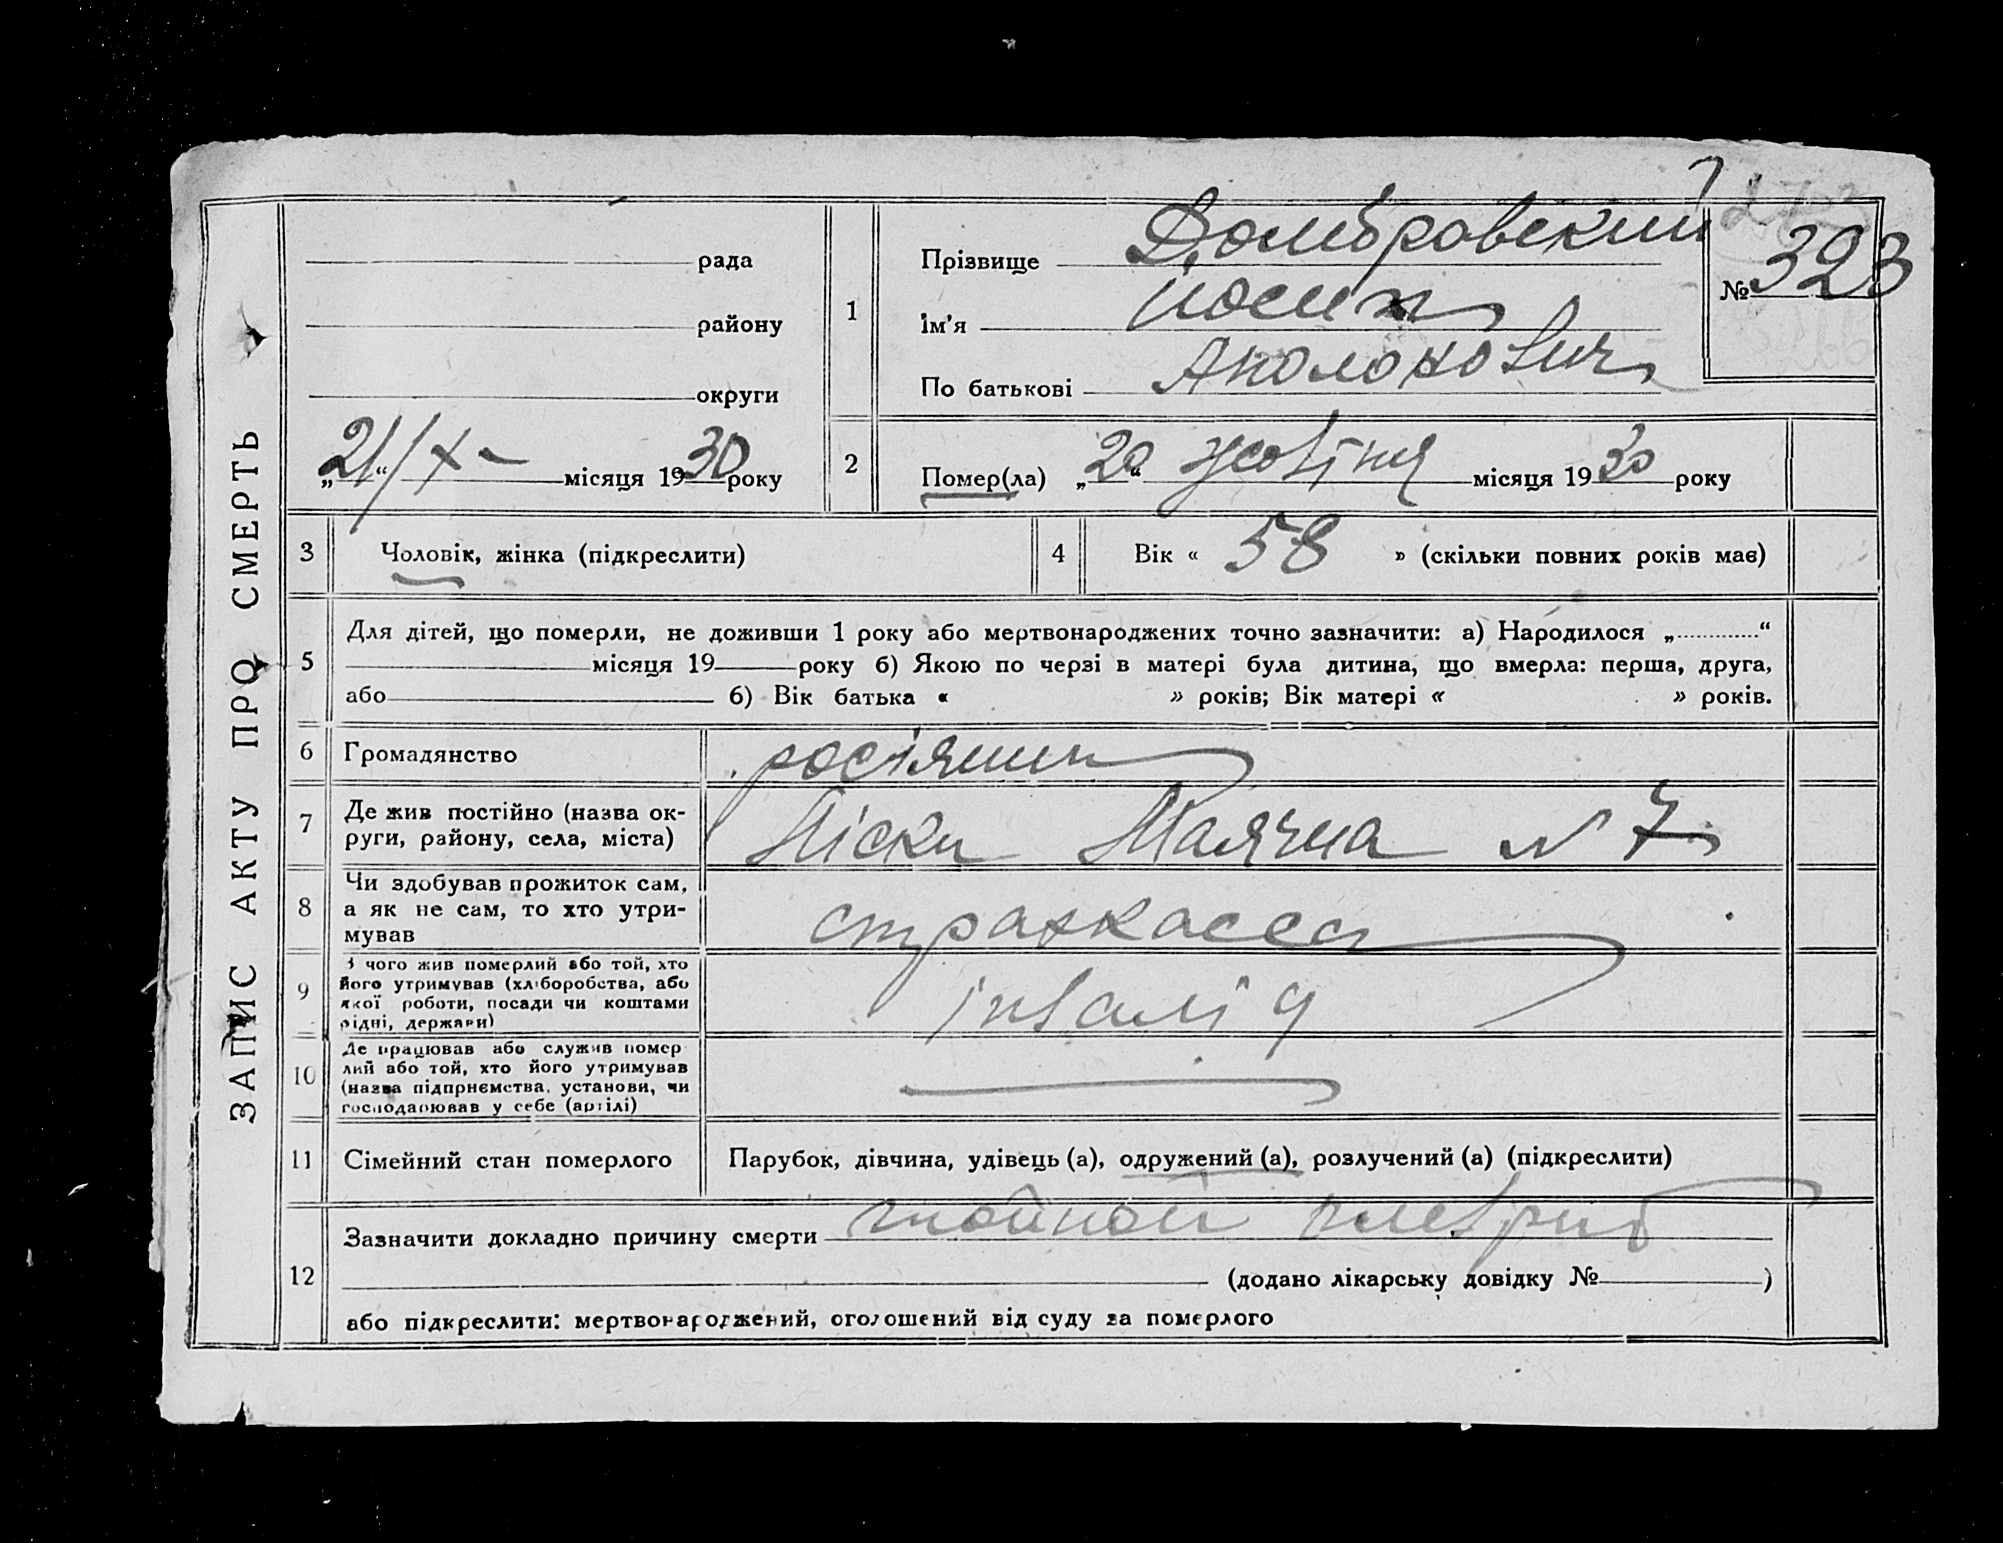 ЗАПИС АКТУ ПРО СМЕРТЬ
рада
району
округи
„21“/X- місяця 1930 року
1
Прізвище Домбровский
Ім'я Иосип
По батькові Аполонович
№ 323
2
Помер(ла) „20“ жовтня місяця 1930 року
3 Чоловік, жінка (підкреслити)
4 Вік « 58 » (скільки повних років має)
5
Для дітей, що померли, не доживши 1 року або мертвонароджених точно зазначити: а) Народилося „............“
місяця 19 року б) Якою по черзі в матері була дитина, що вмерла: перша, друга,
або б) Вік батька « » років; Вік матері « » років.
6 Громадянство росіянин
7
Де жив постійно (назва ок-
руги, району, села, міста)
Піски Маячна N 7
8
Чи здобував прожиток сам,
а як не сам, то хто утри-
мував
страхкасса
9
З чого жив померлий або той, хто
його утримував (хліборобства, або
якої роботи, посади чи коштами
рідні, держави)
інвалід
10
Де працював або служив помер
лий або той, хто його утримував
(назва підприємства, установи, чи
господарював у себе (артілі)
11 Сімейний стан померлого Парубок, дівчина, удівець (а), одружений (а), розлучений (а) (підкреслити)
12
Зазначити докладно причину смерти гнойной плеврит
(додано лікарську довідку № )
або підкреслити: мертвонароджений, оголошений від суду за померлого